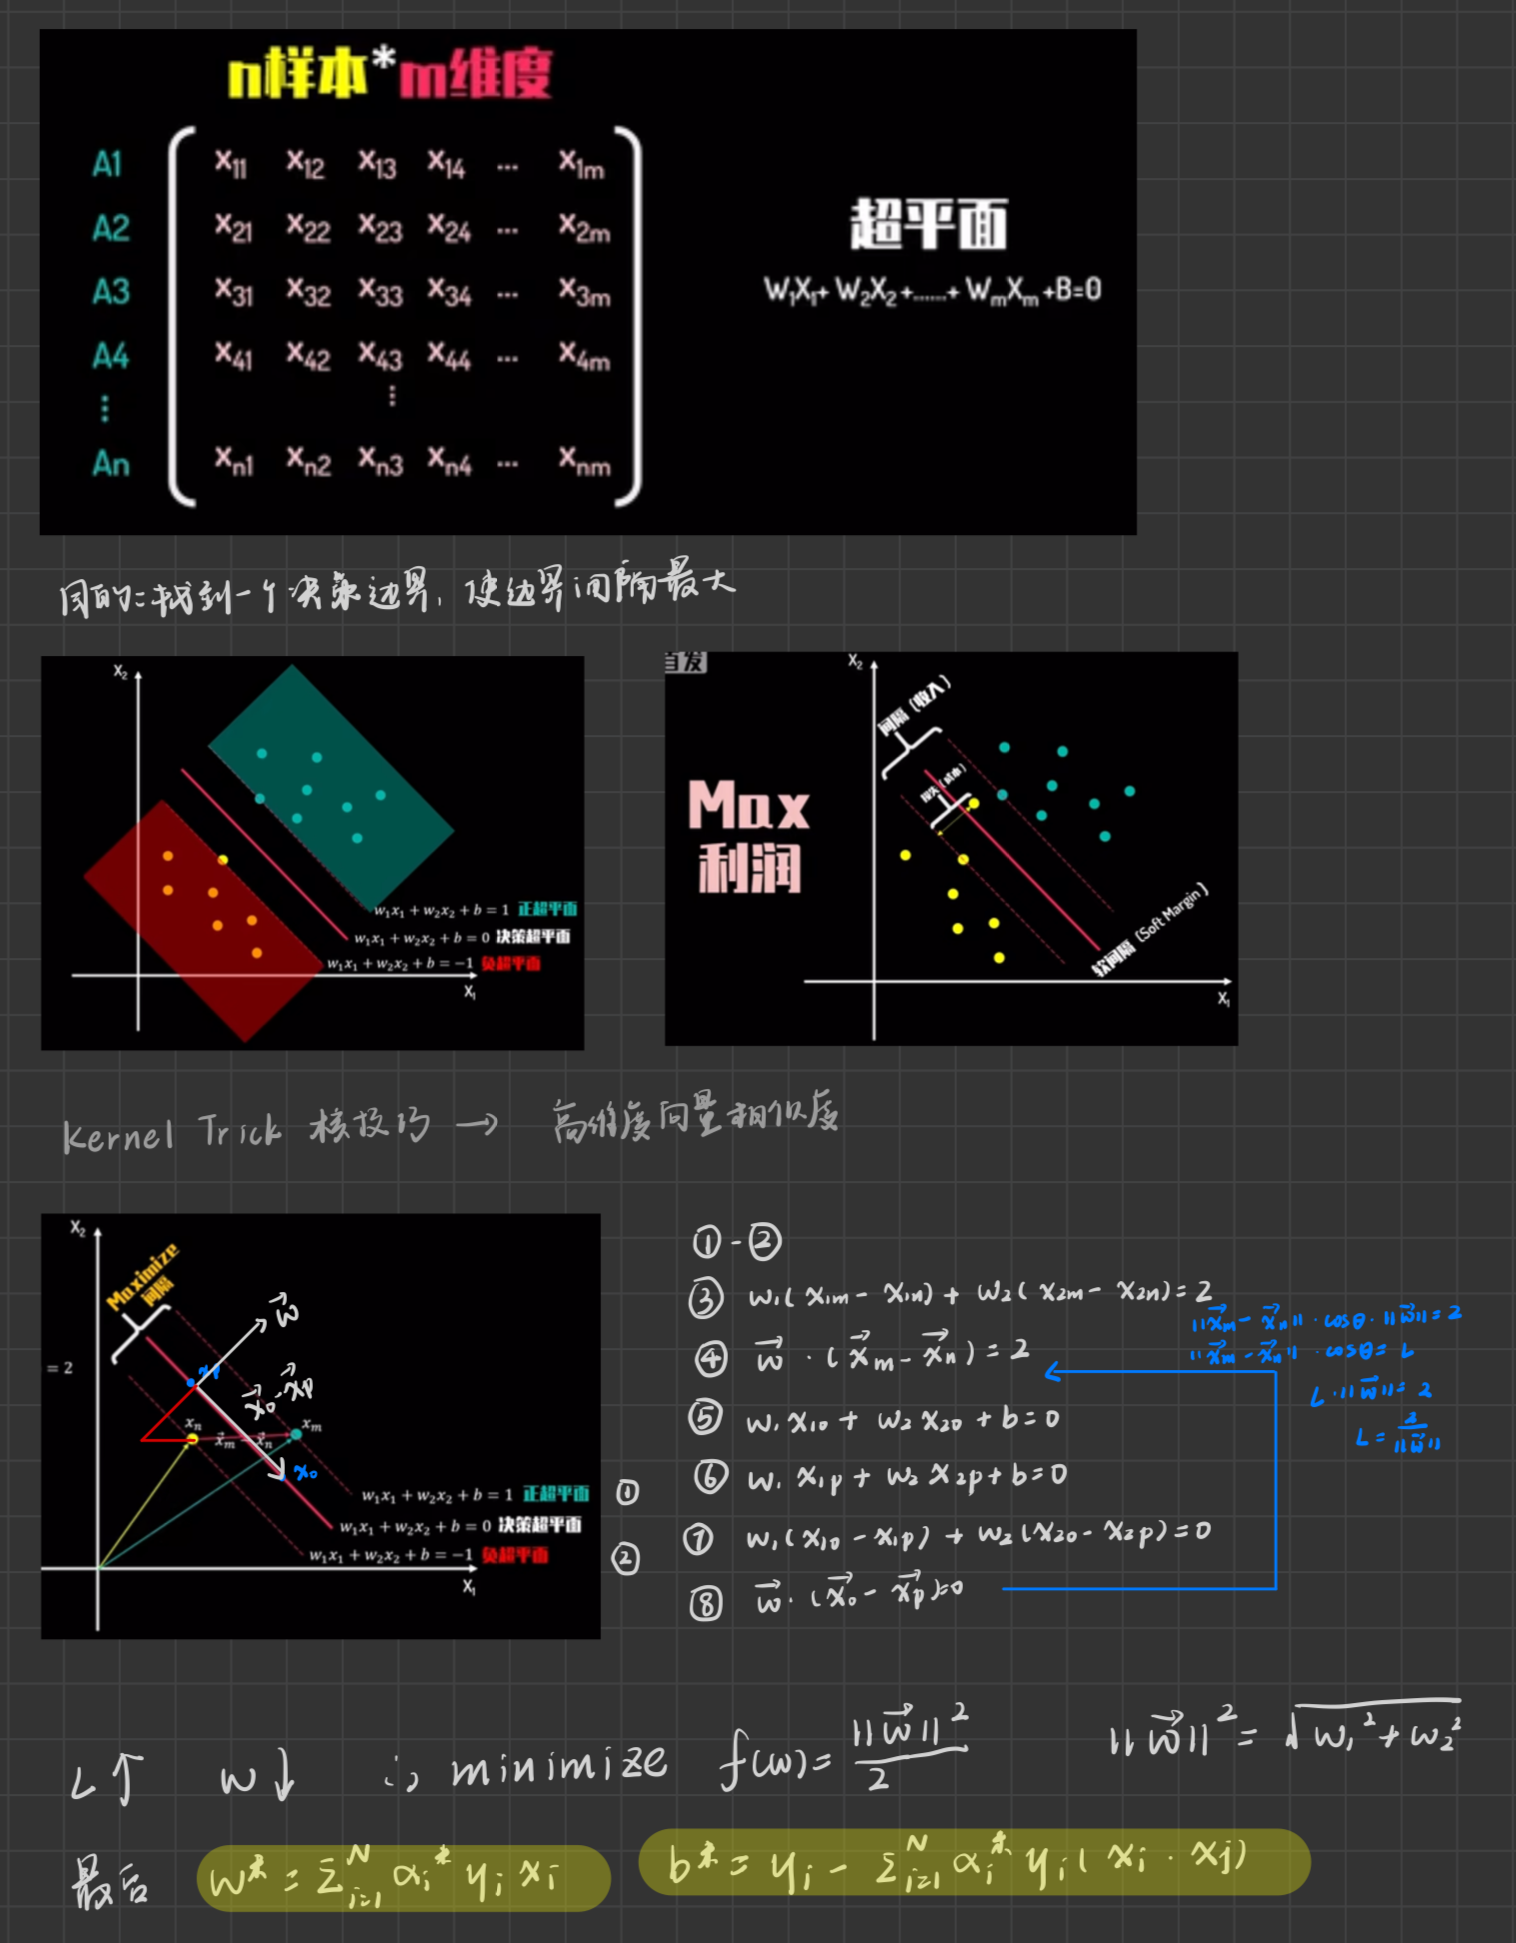 n样本*m维度
A1 X11 X12 X13 X14 ... X1m
A2 X21 X22 X23 X24 ... X2m
A3 X31 X32 X33 X34 ... X3m
A4 X41 X42 X43 X44 ... X4m
⋮ ⋮
An Xn1 Xn2 Xn3 Xn4 ... Xnm
超平面
W₁X₁+ W₂X₂+......+ WₘXₘ+B=0
目的:找到一个决策边界,使边界间隔最大
X₂
w₁x₁ + w₂x₂ + b = 1 正超平面
w₁x₁ + w₂x₂ + b = 0 决策超平面
w₁x₁ + w₂x₂ + b = −1 负超平面
X₁
首发
X₂
间隔 (收入)
Max
利润
软间隔 (Soft Margin)
X₁
Kernel Trick 核技巧 → 高维度向量相似度
X₂
Maximize
间隔
w⃗
= 2
xp
x⃗₀-x⃗p
xₙ
xₘ
x⃗ₘ − x⃗ₙ
x₀
w₁x₁ + w₂x₂ + b = 1 正超平面 ①
w₁x₁ + w₂x₂ + b = 0 决策超平面
w₁x₁ + w₂x₂ + b = −1 负超平面 ②
X₁
①-②
③ w₁(x₁m - x₁n) + w₂(x₂m - x₂n) = 2
④ w⃗ · (x⃗m - x⃗n) = 2
⑤ w₁x₁₀ + w₂x₂₀ + b = 0
⑥ w₁x₁p + w₂x₂p + b = 0
⑦ w₁(x₁₀ - x₁p) + w₂(x₂₀ - x₂p) = 0
⑧ w⃗ · (x⃗₀ - x⃗p) = 0
||x⃗m - x⃗n|| · cosθ · ||w⃗|| = 2
||x⃗m - x⃗n|| · cosθ = L
L · ||w⃗|| = 2
L = 2/||w⃗||
L↑ w↓ ∴ minimize f(w) = ||w⃗||²/2 ||w⃗||² = √(w₁² + w₂²)
最后 w* = Σᵢ₌₁ᴺ αᵢ* yᵢ xᵢ b* = yᵢ - Σᵢ₌₁ᴺ αᵢ* yᵢ (xᵢ · xⱼ)